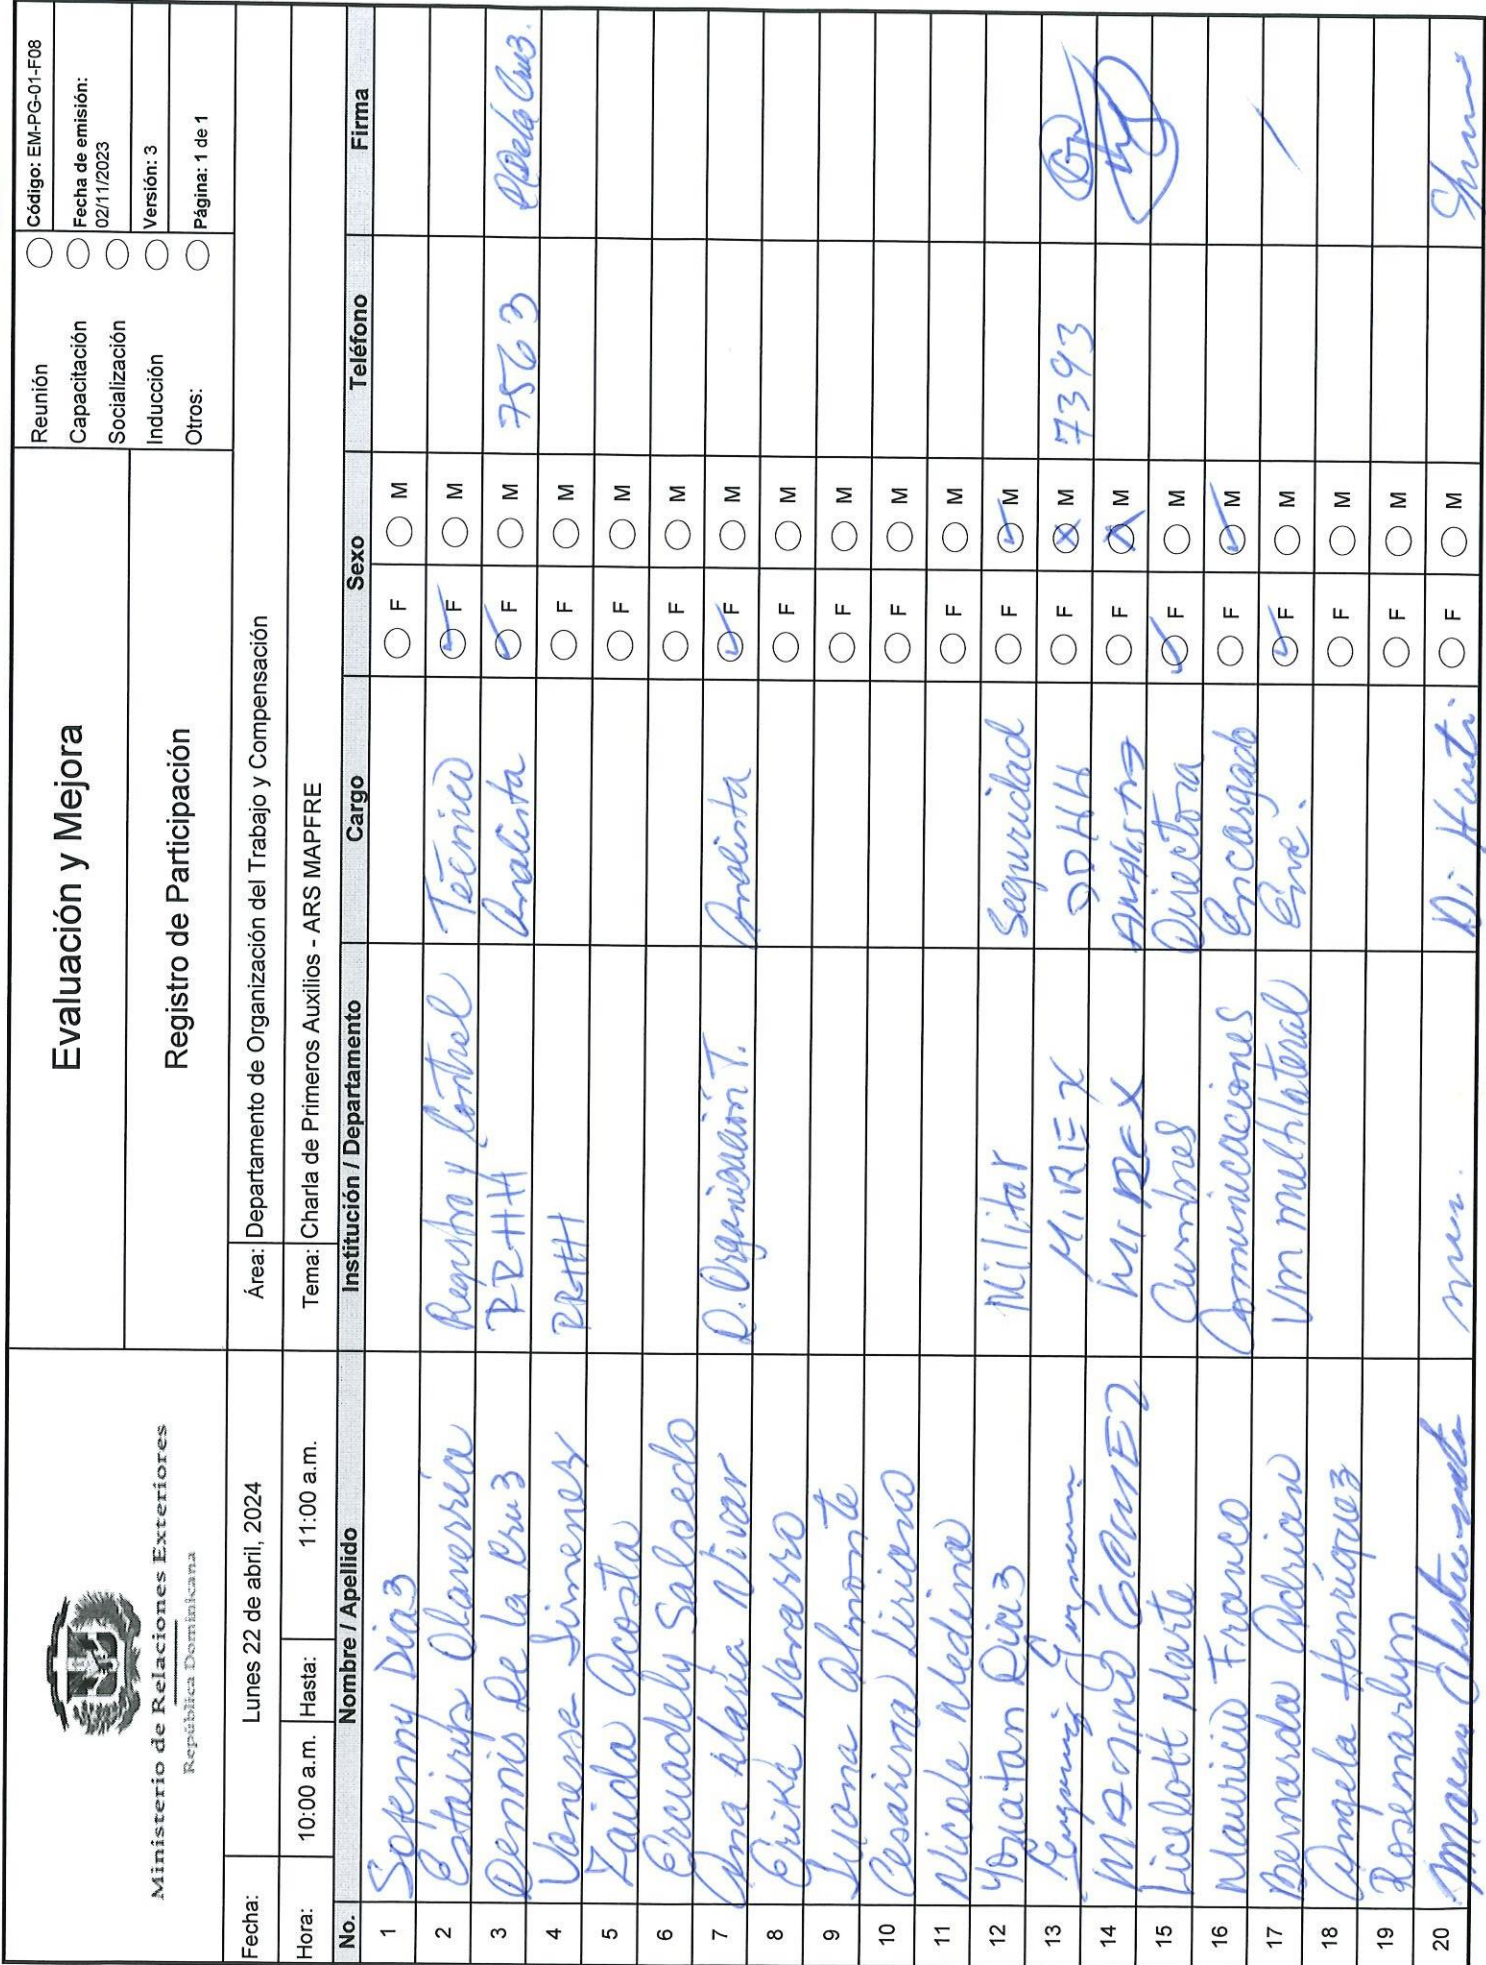 Ministerio de Relaciones Exteriores
República Dominicana
Evaluación y Mejora
Registro de Participación
Reunión
Capacitación
Socialización
Inducción
Otros:
Código: EM-PG-01-F08
Fecha de emisión:
02/11/2023
Versión: 3
Página: 1 de 1
Fecha: Lunes 22 de abril, 2024 Área: Departamento de Organización del Trabajo y Compensación
Hora: 10:00 a.m. Hasta: 11:00 a.m. Tema: Charla de Primeros Auxilios - ARS MAPFRE
No. Nombre / Apellido Institución / Departamento Cargo Sexo Teléfono Firma
1 Sotenny Diaz F M
2 Estairys Olaverría Registro y Control Técnico F M
3 Dennis De La Cruz RRHH Analista F M 7563 De la Cruz.
4 Vanessa Jimenez RRHH F M
5 Zaida Acosta F M
6 Ercuadely Salsedo F M
7 Ana Maria Vivar D. Organización T. Analista F M
8 Erika Navarro F M
9 Juana Almonte F M
10 Cesarina Liriano F M
11 Nicole Medina F M
12 Yonatan Diaz Militar Seguridad F M
13 MIREX DDHH F M 7393
14 MAXIMO GOMEZ MIREX Analista F M
15 Licelott Marte Cumbres Directora F M
16 Mauricio Franco Comunicaciones Encargado F M
17 Bernarda Adrian Vm multilateral Enc. F M
18 Angela Henríquez F M
19 Rosemarlyn F M
20 F M